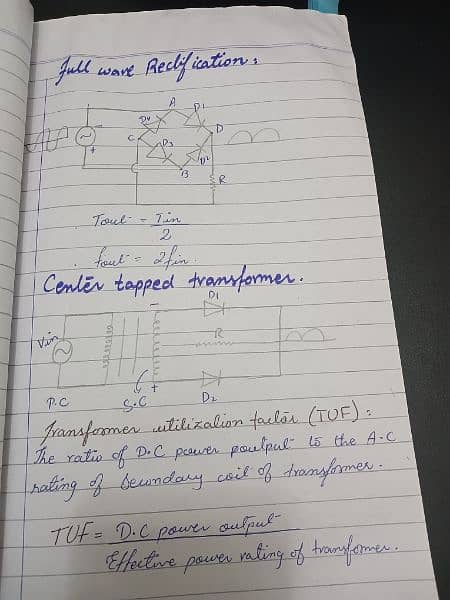 Full wave Rectification:
A
D1
D4
C
D
D3
D2
B
R
+
Tout = Tin
2
fout = 2fin
Center tapped transformer.
D1
Vin
R
+
P.C
S.C
D2
Transformer utilization factor (TUF):
The ratio of D.C power poutput to the A.C
rating of Secondary coil of transformer.
TUF = D.C power output
Effective power rating of transformer.